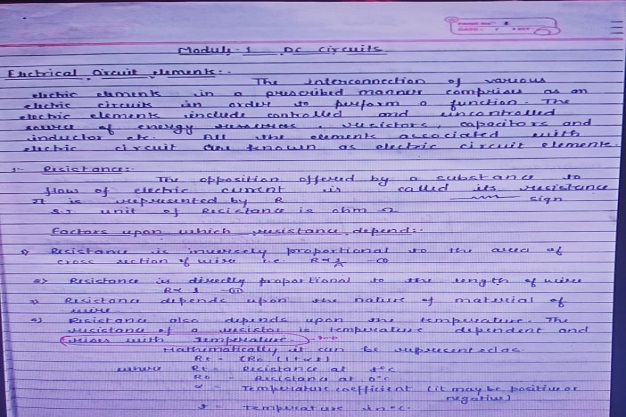 Module-1 DC Circuits
Electrical Circuit elements:-
The interconnection of various
electric elements in a prescribed manner comprises as an
electric circuit in order to perform a function. The
electric elements include controlled and uncontrolled
source of energy, resistors, capacitors and
inductor etc. All the elements associated with
electric circuit are known as electric circuit elements.
1- Resistance:-
The opposition offered by a substance to
flow of electric current is called its resistance
It is represented by R sign
S.I unit of Resistance is ohm Ω
Factors upon which resistance depend:-
1) Resistance is inversely proportional to the area of
cross section of wire i.e. R∝1/A —(1)
2) Resistance is directly proportional to the length of wire
R∝ l —(2)
3) Resistance depends upon the nature of material of
wire.
4) Resistance also depends upon the temperature. The
resistance of a resistor is temperature dependent and
rises with temperature.
Mathematically it can be represented as.
Rt = (R0 (1+αt)
where Rt = Resistance at t°C
R0 = Resistance at 0°C
α = Temperature coefficient (it may be positive or
negative)
t = Temperature in °C.